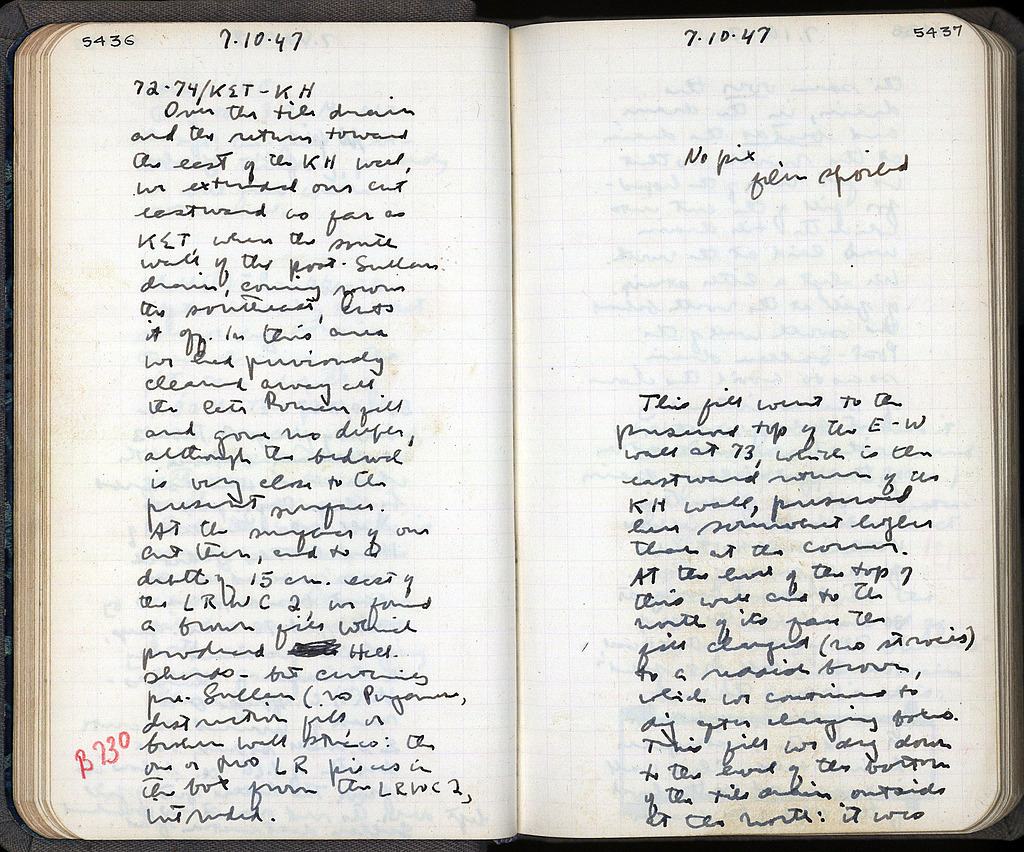 5436
7·10·47
72-74/KΣT-KH
Over the tile drain
and the return toward
the east of the KH wall,
we extended our cut
eastward as far as
KΣT, where the south
wall of the post-Sullan
drain, coming from
the southeast, cuts
it off. In this area
we had previously
cleared away all
the late Roman fill
and gone no deeper,
although the bedrock
is very close to the
present surface.
At the surface of our
cut then, and to a
depth of 15 cm. east of
the LRWC 2, we found
a brown fill which
produced Hell.
sherds - but certainly
pre-Sullan (no Pergamene,
destruction fills or
broken wall stucco: the
one or two LR pieces in
the box from the LRWC 2,
intruded.
B 230
7·10·47
5437
No pix
film spoiled
This fill went to the
preserved top of the E-W
wall at 73, which is the
eastward return of the
KH wall, preserved
here somewhat higher
than at the corner.
At the level of the top of
this wall and to the
north of its face the
fill changed (no stroies)
to a reddish brown,
which we continued to
dig after changing boxes.
This fill we dug down
to the level of the bottom
of the tile drain outside
at the north: it was